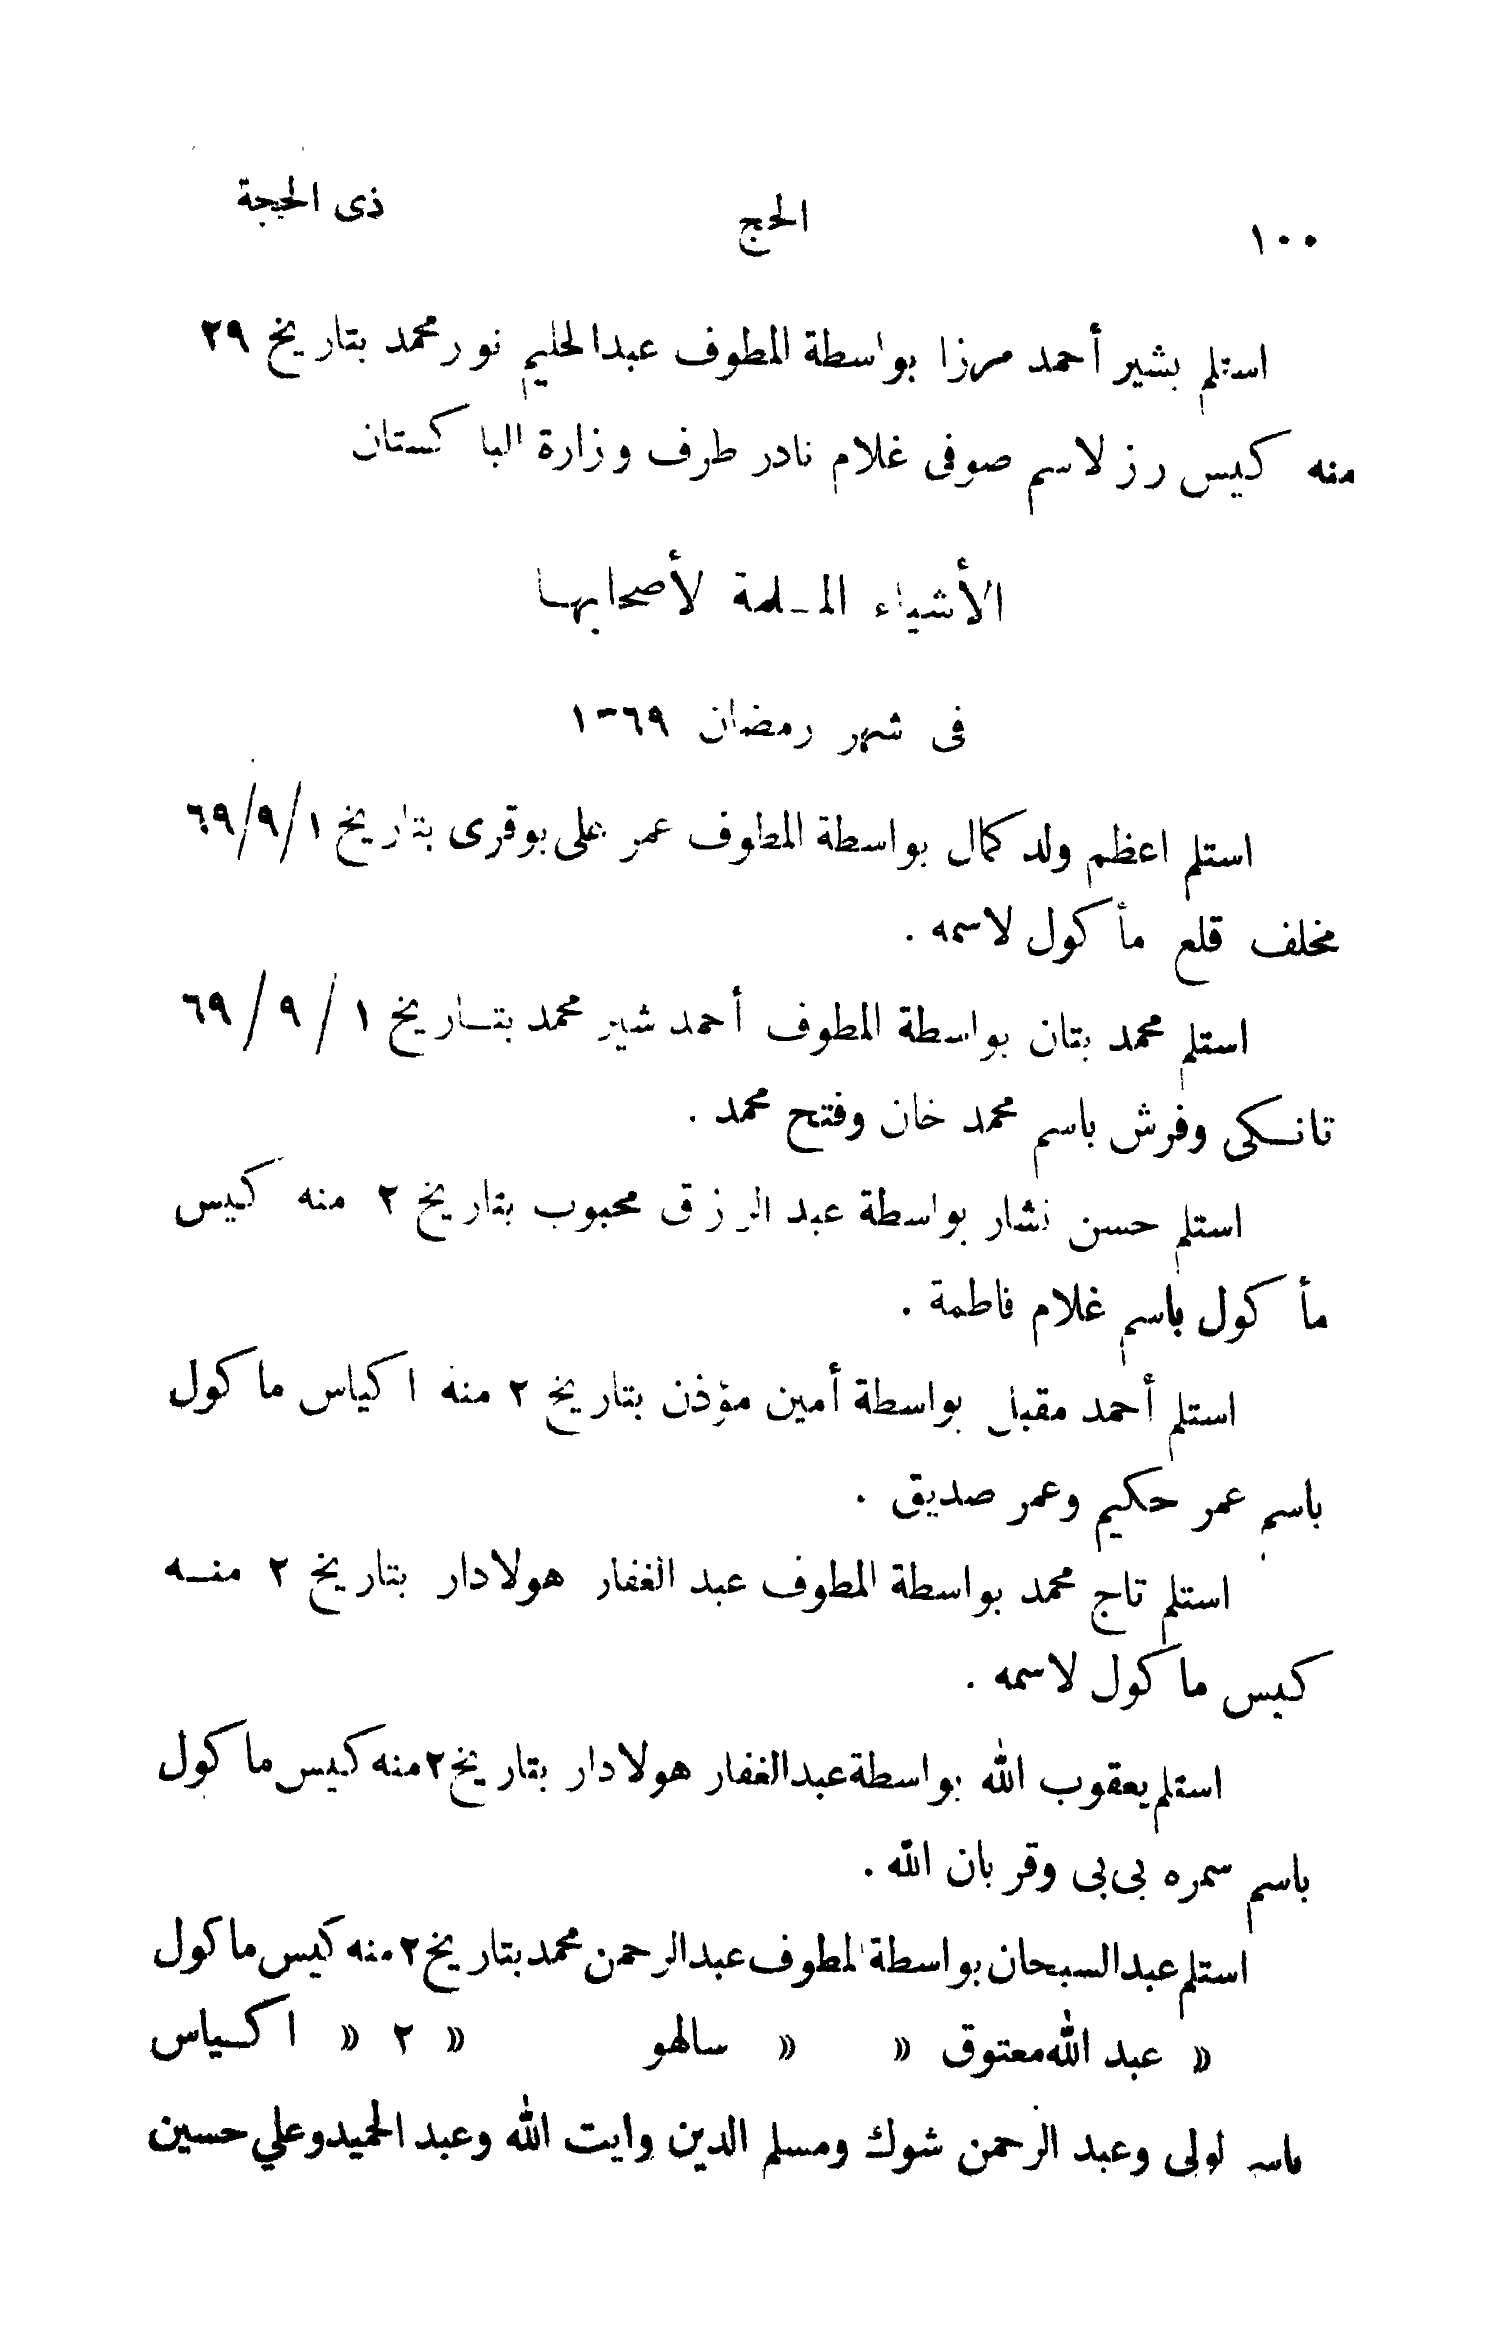 ١٠٠ الحج ذى الحجة
استلم بشير أحمد مرزا بواسطة المطوف عبدالحليم نور محمد بتاريخ ٢٩
منه كيس رز لاسم صوفى غلام نادر طرف وزارة الباكستان
الأشياء المسلمة لأصحابها
فى شهر رمضان ١٣٦٩
استلم اعظم ولد كمال بواسطة المطوف عمر على بوقرى بتاريخ ٦٩/٩/١
مخلف قلع مأكول لاسمه .
استلم محمد بتان بواسطة المطوف أحمد شير محمد بتـاريخ ١ / ٩ / ٦٩
تانـكى وفرش باسم محمد خان وفتح محمد .
استلم حسن نشار بواسطة عبد الرزق محبوب بتاريخ ٢ منه كيس
مأكول باسم غلام فاطمة .
استلم أحمد مقبل بواسطة أمين مؤذن بتاريخ ٢ منه اكياس ماكول
باسم عمر حكيم وعمر صديق .
استلم تاج محمد بواسطة المطوف عبد الغفار هولادار بتاريخ ٢ منـه
كيس ماكول لاسمه .
استلم يعقوب الله بواسطة عبدالغفار هولادار بتاريخ ٢ منه كيس ماكول
باسم سمره بى بى وقربان الله .
استلم عبدالسبحان بواسطة المطوف عبدالرحمن محمد بتاريخ ٢ منه كيس ماكول
« عبد الله معتوق « « سالهو « ٢ « اكـياس
باسم لولى وعبد الرحمن شوك ومسلم الدين وايت الله وعبد الحميد وعلي حسين